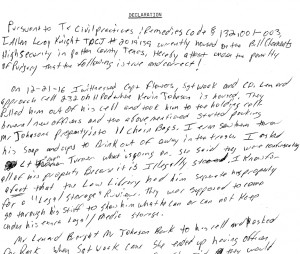 DECLARATION
Pursuant To Tx Civil practices, Remedies Code § 132.001-003,
I Allen Long Knight TDCJ # currently housed on the Bill Clements
High security in Potter County Texas, Hereby attest under the penalty
of Perjury that the following is true and correct!
On 12-21-16, I witnessed Capt Flowers, Sgt Wock and CO. Leonard
approach cell where Kevin Johnson is housed, They
pulled him out of his cell and took him to the holding cell
new officers and the above mentioned started putting
Mr Johnson property into 11 Chain Bags. I even saw them throw
his soap and cups to Drink out of away in the trash. I asked
Lt Turner what is going on, she said they were confiscating
all of his property Because it is Illegally stored, I know for
a fact that the Law Library had him separate his property
for a "Legal storage" Review. They were supposed to come
go through his stuff to show him what he can or can not keep
under his extra legal / Medic storage.
Mr Leonard Brought Mr Johnson Back to his cell and asked
Sgt Wock came She ended up having officers
they would